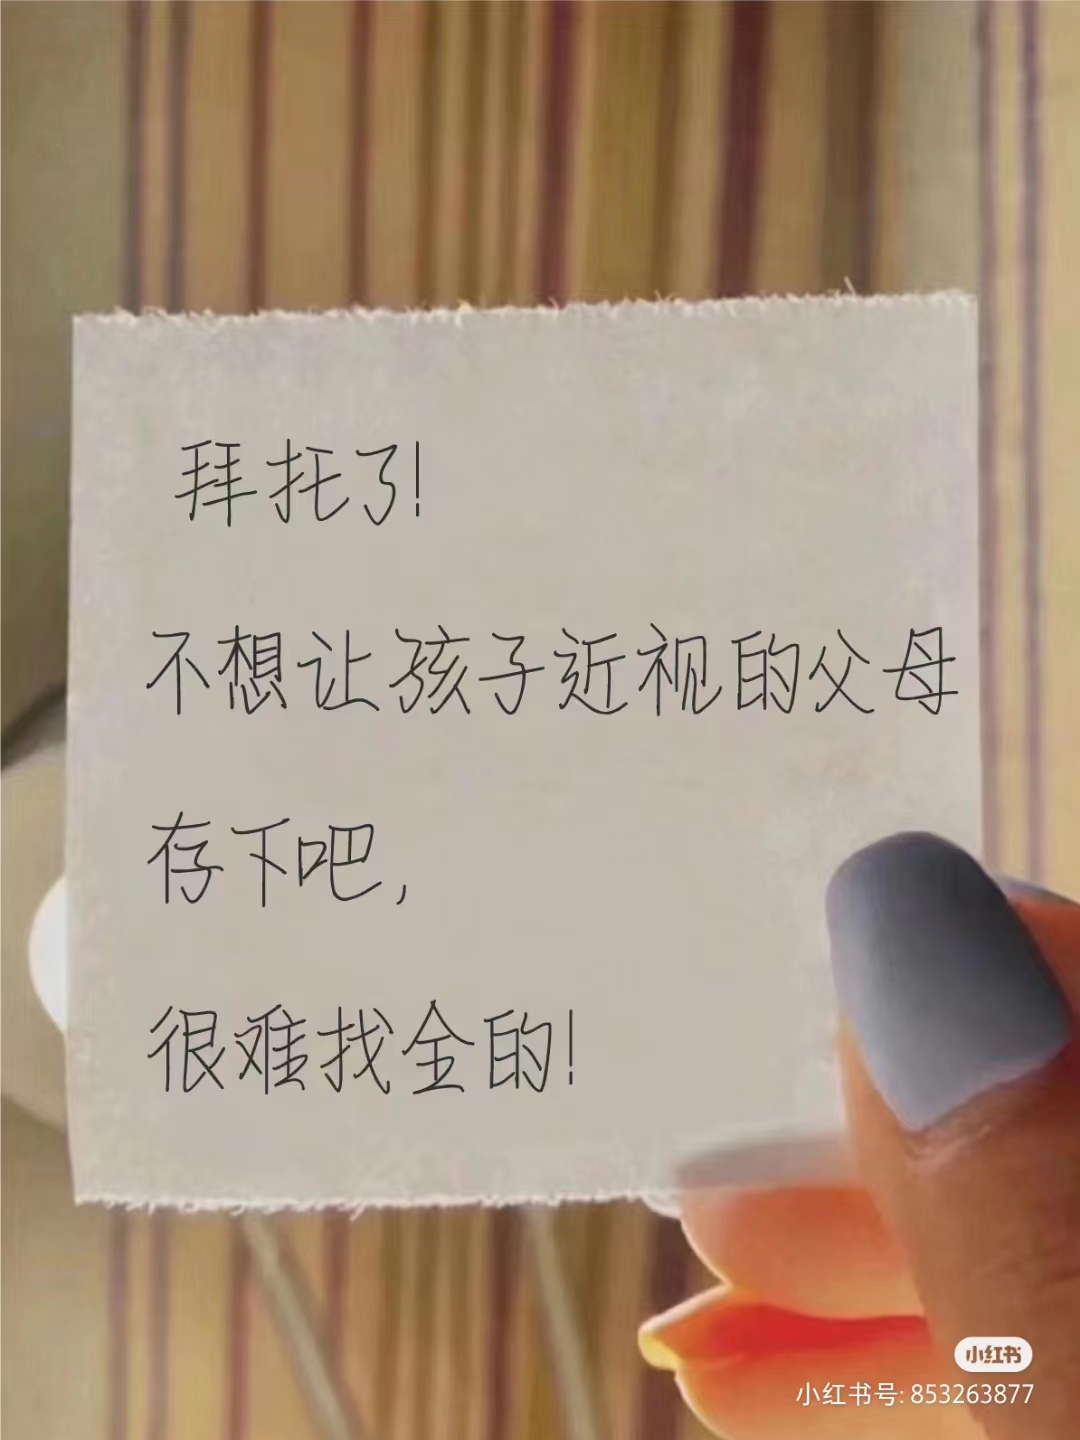 拜托了!
不想让孩子近视的父母
存下吧,
很难找全的!
小红书
小红书号: 853263877